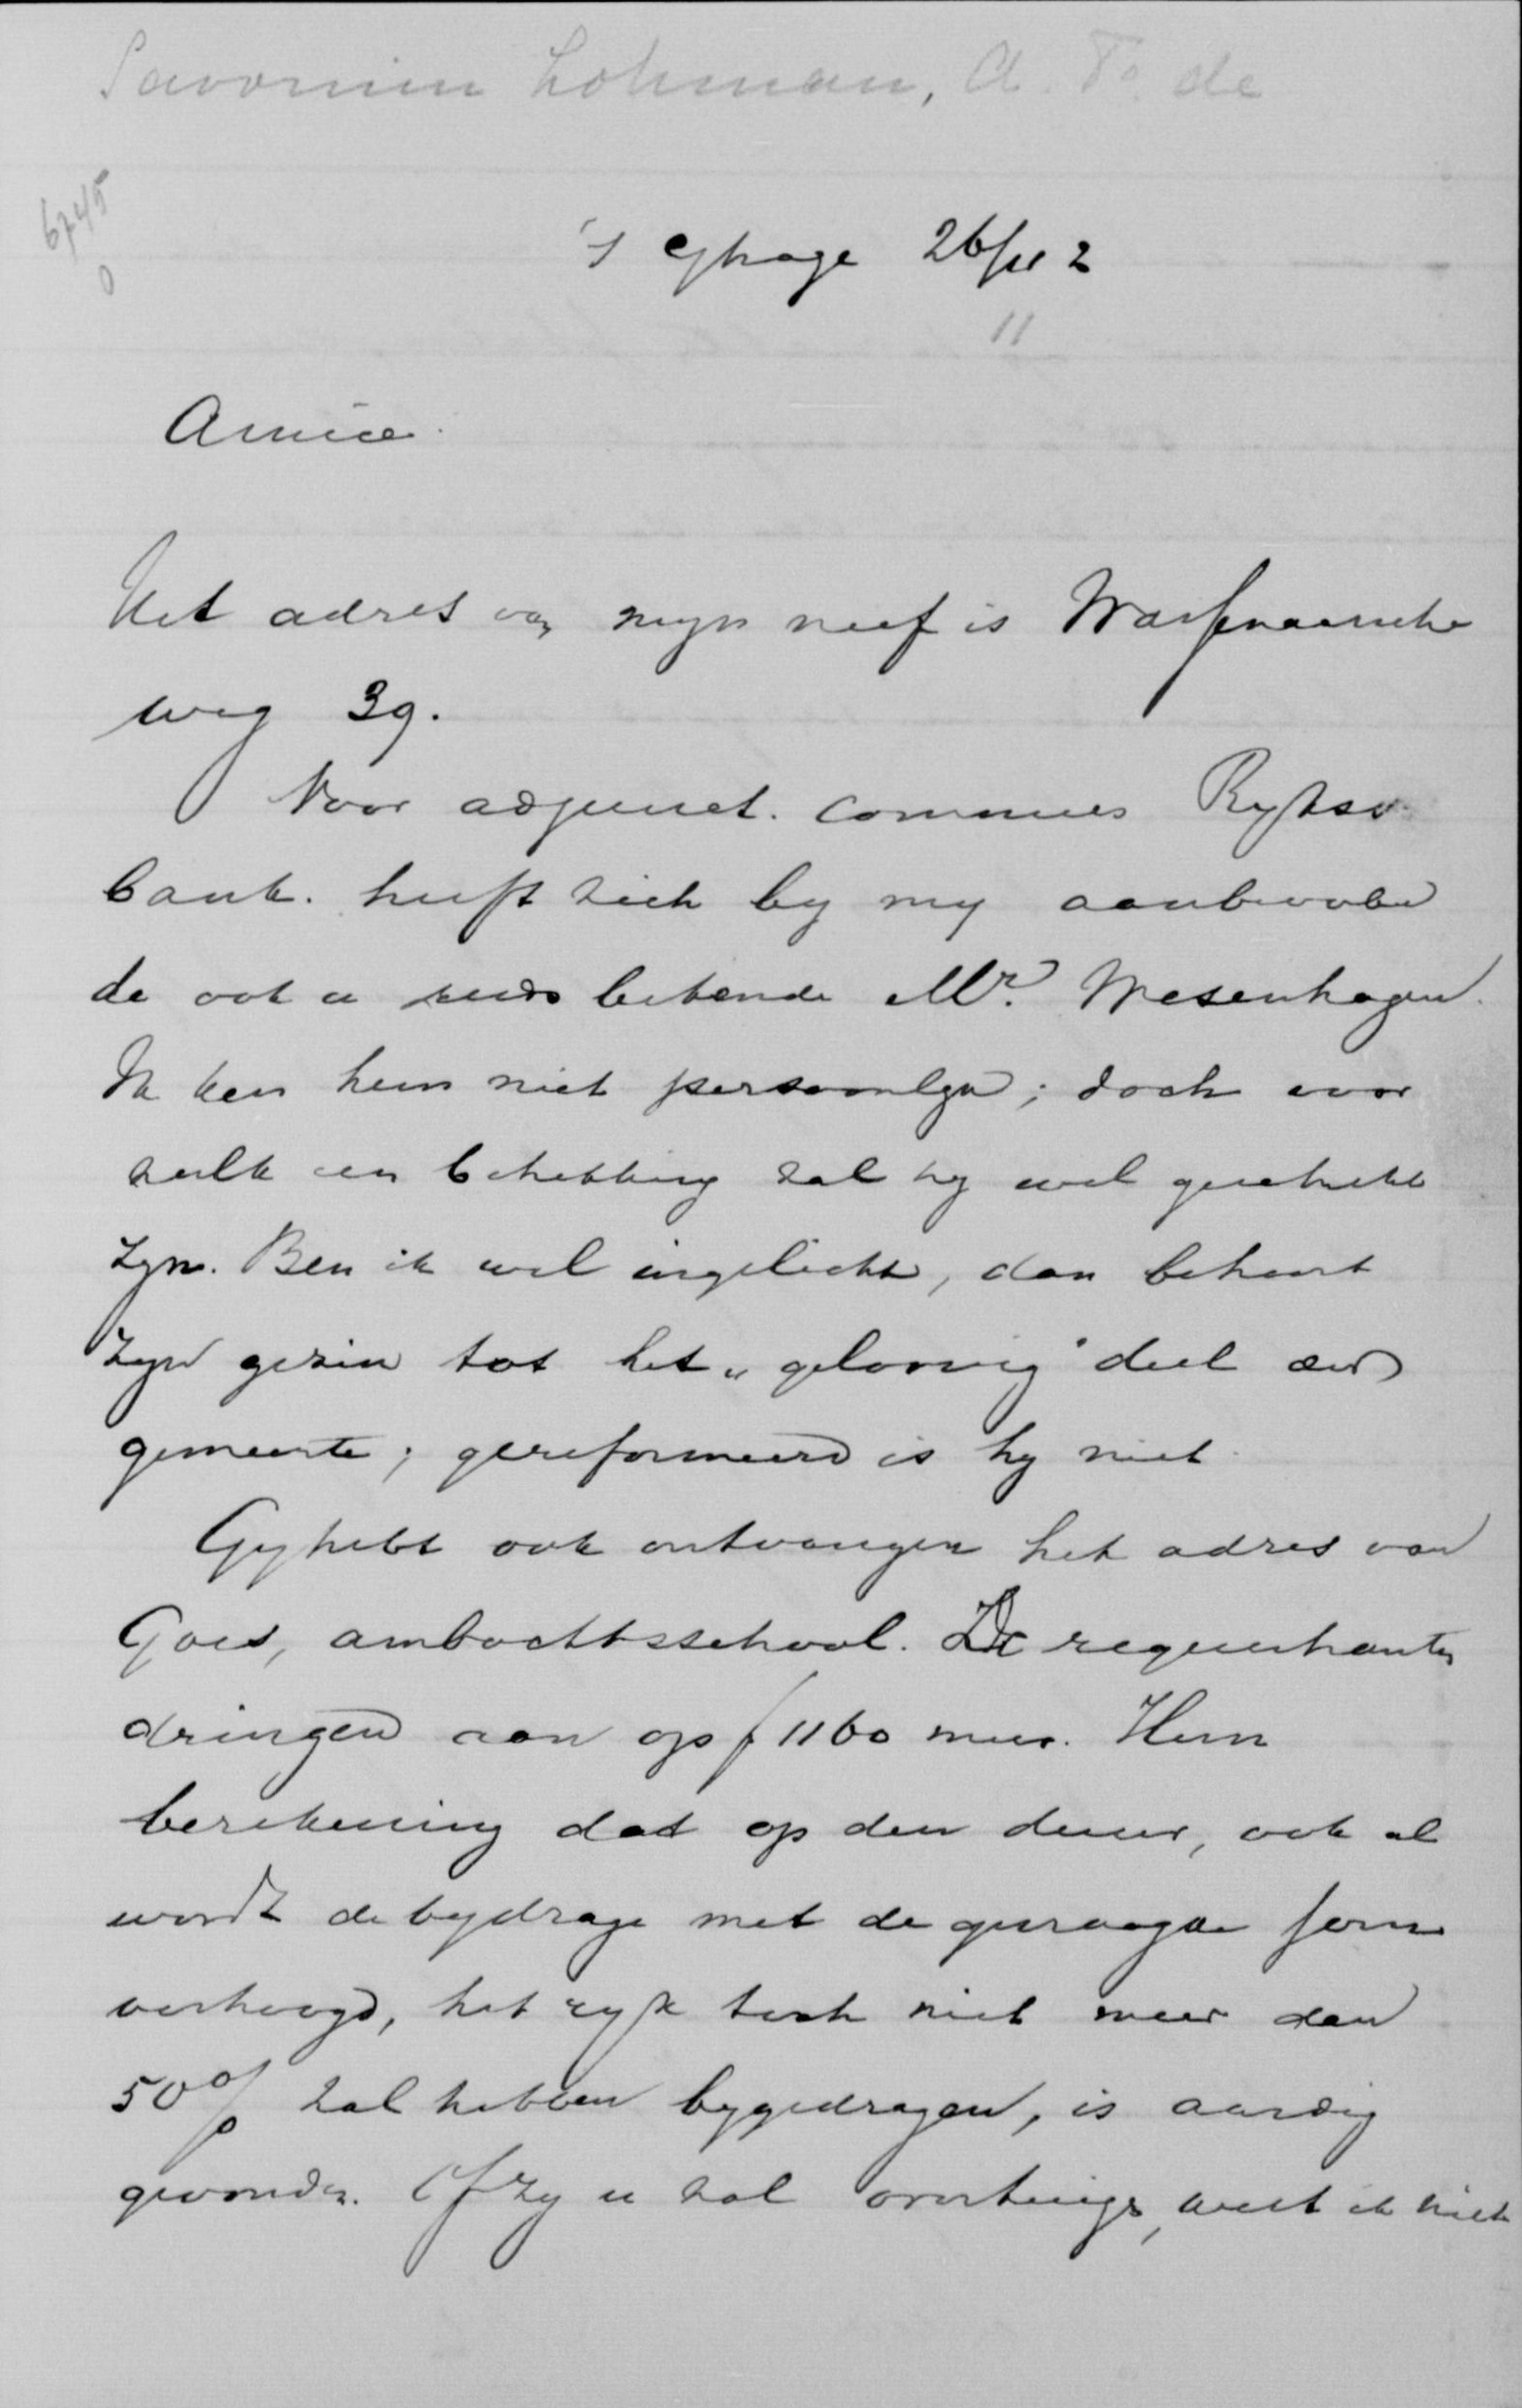 Savornin Lohman, A. F. de
6745
0
's Ghage 26/11 2
11
Amice.
Het adres van mijn neef is Wassenaarsche
weg 39.
Voor adjunct. commies Ryksv.
bank. heeft zich by my aanbevolen
de ook u reeds bekende Mr. Wesenhagen.
Ik ken hem niet persoonlyk; doch voor
zulk een betrekking zal hy wel geschikt
zyn. Ben ik wel ingelicht, dan behoort
zyn gezin tot het „geloovig" deel der
gemeente; gereformeerd is hy niet.
Gy hebt ook ontvangen het adres van
Goes, ambachtsschool. De requestranten
dringen aan op f 1160 meer. Hun
berekening dat op den duur, ook al
wordt de bydrage met de gevraagde som
verhoogd, het ryk toch niet meer dan
50% zal hebben bygedragen, is aardig
gevonden. Of zy u zal overtuigen, weet ik niet